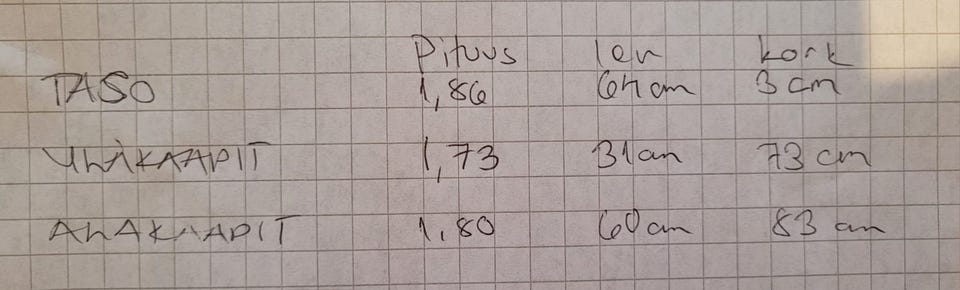 Pituus lev kork
TASO 1,86 64cm 3cm
YLÄKAAPIT 1,73 31cm 73 cm
ALAKAAPIT 1,80 60cm 83 cm